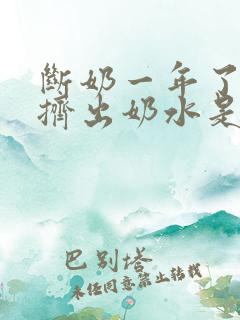 斷奶一年了
擠出奶水是
巴别塔
未经同意禁止转载